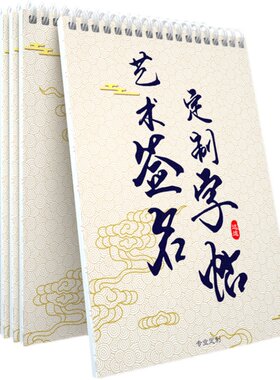 艺术签名
定制字帖
专业定制